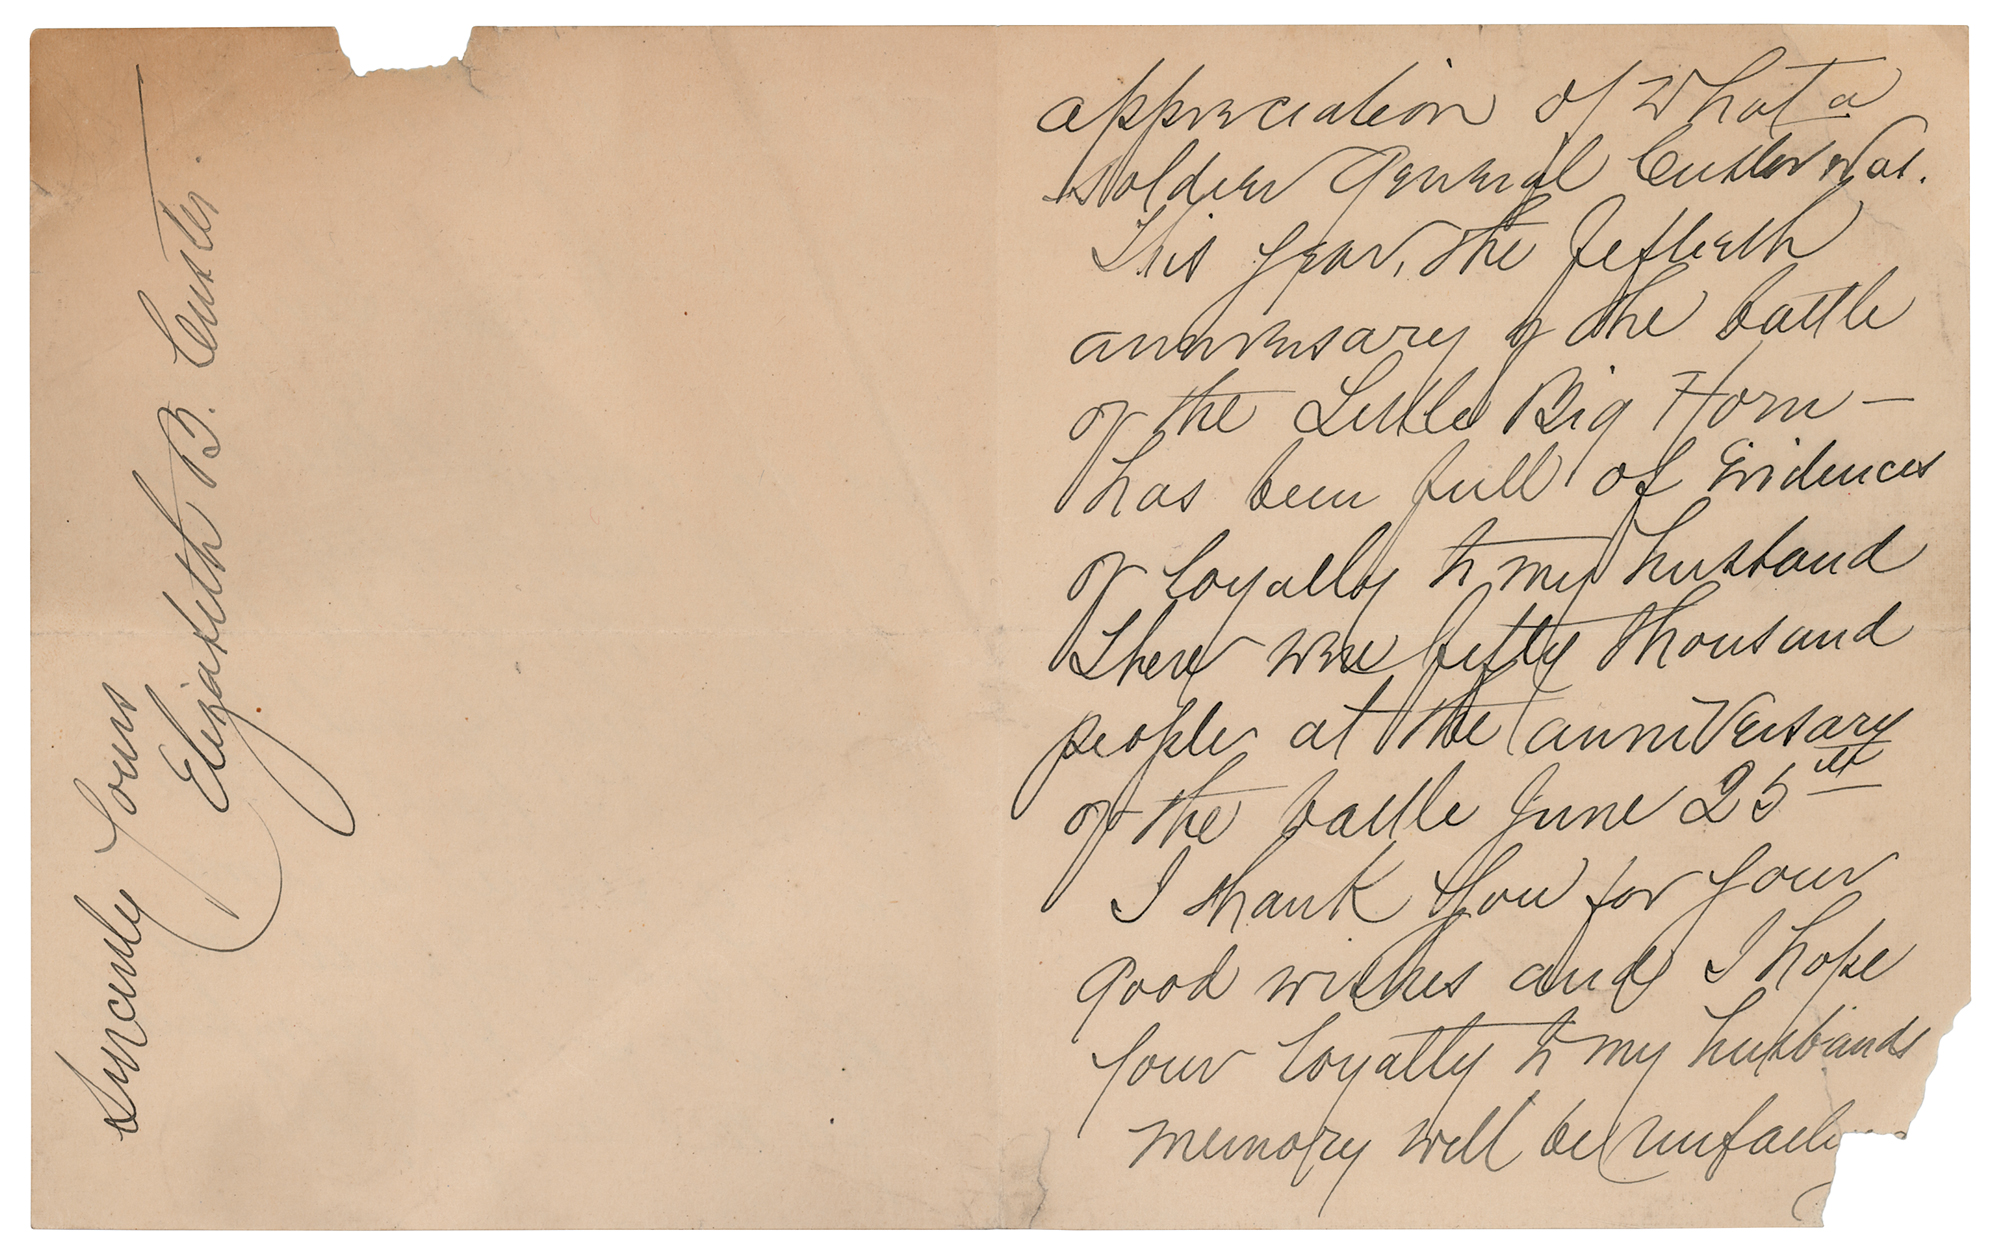 appreciation of what a
soldier General Custer was.
This year, the fiftieth
anniversary of the battle
of the Little Big Horn —
has been full of evidences
of loyalty to my husband
There were fifty thousand
people at the anniversary
of the battle June 25th
I thank you for your
good wishes and I hope
your loyalty to my husbands
memory will be
Sincerely yours
Elizabeth B. Custer.